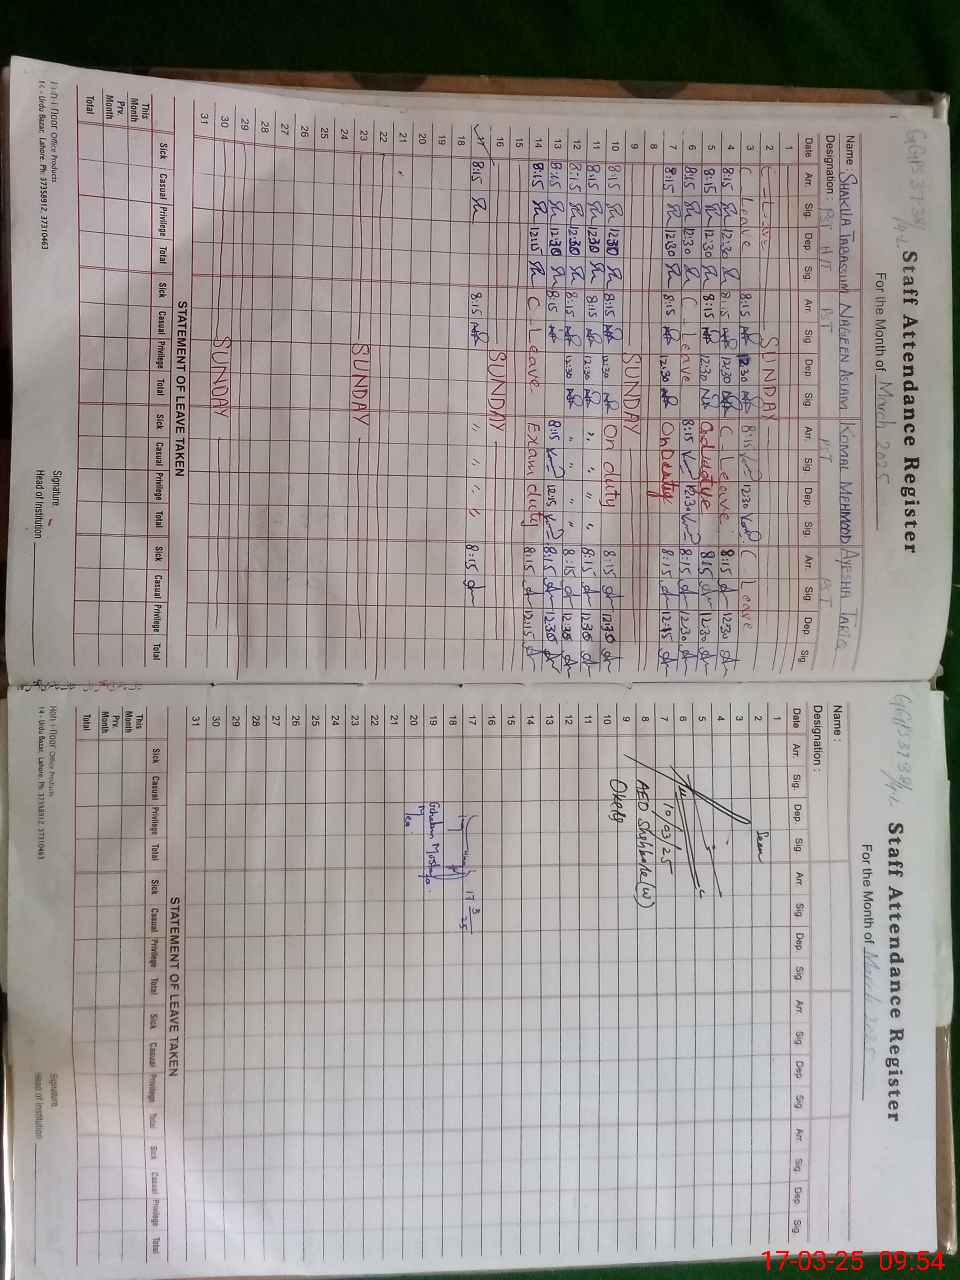 Staff Attendance Register
For the Month of March 2025
Name : SHAKILA TABASSUM NAGEEN ASLAM KOMAL MEHMOOD AYESHA TARIQ
Designation : PST H/T PST
Date Arr. Sig. Dep Sig. Arr. Sig. Dep Sig Arr. Sig. Dep Sig. Arr. Sig Dep Sig
1
2 SUNDAY
3 C - Leave 8:15 12:30 8:15 12:30 C - Leave
4 8:15 12:30 8:15 12:30 C - Leave 8:15 12:30
5 8:15 12:30 8:15 12:30 8:15 12:30
6 8:15 12:30 C Leave 8:15 12:30 8:15 12:30
7 8:15 12:30 8:15 12:30 8:15 12:45
8
9 SUNDAY
10 8:15 12:30 8:15 12:30 On duty 8:15 12:30
11 8:15 12:30 8:15 12:30 " " " " 8:15 12:30
12 8:15 12:30 8:15 12:30 " " " " 8:15 12:30
13 8:15 12:30 8:15 8:15 12:15 8:15 12:30
14 8:15 12:15 C - Leave Exam duty 8:15 12:15
15
16 SUNDAY
8:15 8:15 " " " " 8:15
18
19
20
21
22
23 SUNDAY
24
25
26
27
28
29
30 SUNDAY
31
STATEMENT OF LEAVE TAKEN
Sick Casual Privilege Total Sick Casual Privilege Total Sick Casual Privilege Total Sick Casual Privilege Total
This Month
Prv. Month
Total
Signature
Head of Institution
Office Products
14 - Urdu Bazar, Lahore. Ph: 37358912, 37310463
Staff Attendance Register
For the Month of March 2025
Name :
Designation :
Date Arr. Sig. Dep Sig. Arr. Sig Dep Sig Arr. Sig. Dep Sig Arr. Sig. Dep Sig.
1
2 Seen
3
4
5
6
7 10/03/25
8 AEO (W)
9 Okay
10
11
12
13
14
15
16
17 17 3/25
18
19
20
21
22
23
24
25
26
27
28
29
30
31
STATEMENT OF LEAVE TAKEN
Sick Casual Privilege Total Sick Casual Privilege Total Sick Casual Privilege Total Sick Casual Privilege Total
This Month
Prv. Month
Total
Signature
Head of Institution
Office Products
14 - Urdu Bazar, Lahore. Ph: 37358912, 37310463
17-03-25 09:54